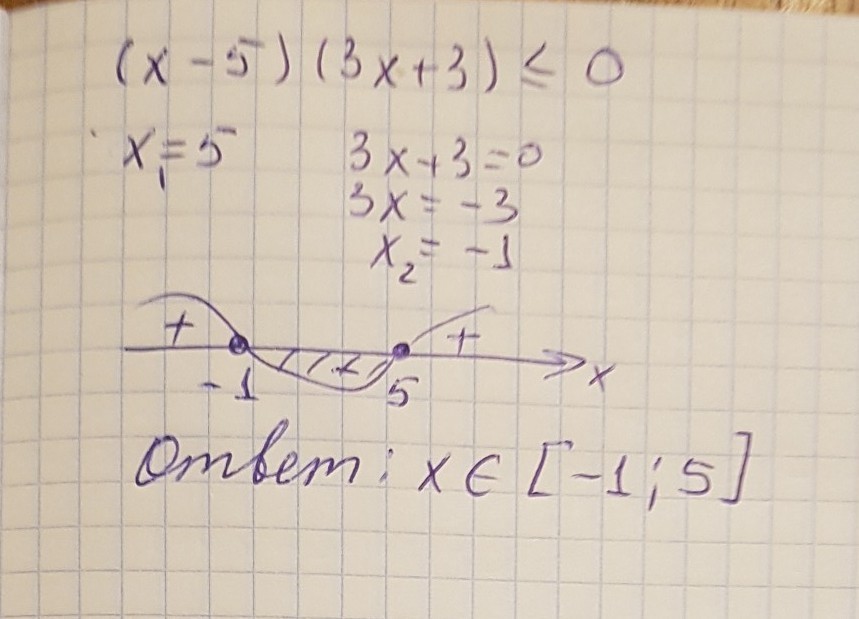 (x - 5) (3x + 3) ≤ 0
x₁ = 5
3x + 3 = 0
3x = -3
x₂ = -1
+ - +
-1 5 x
Ответ: x ∈ [-1; 5]